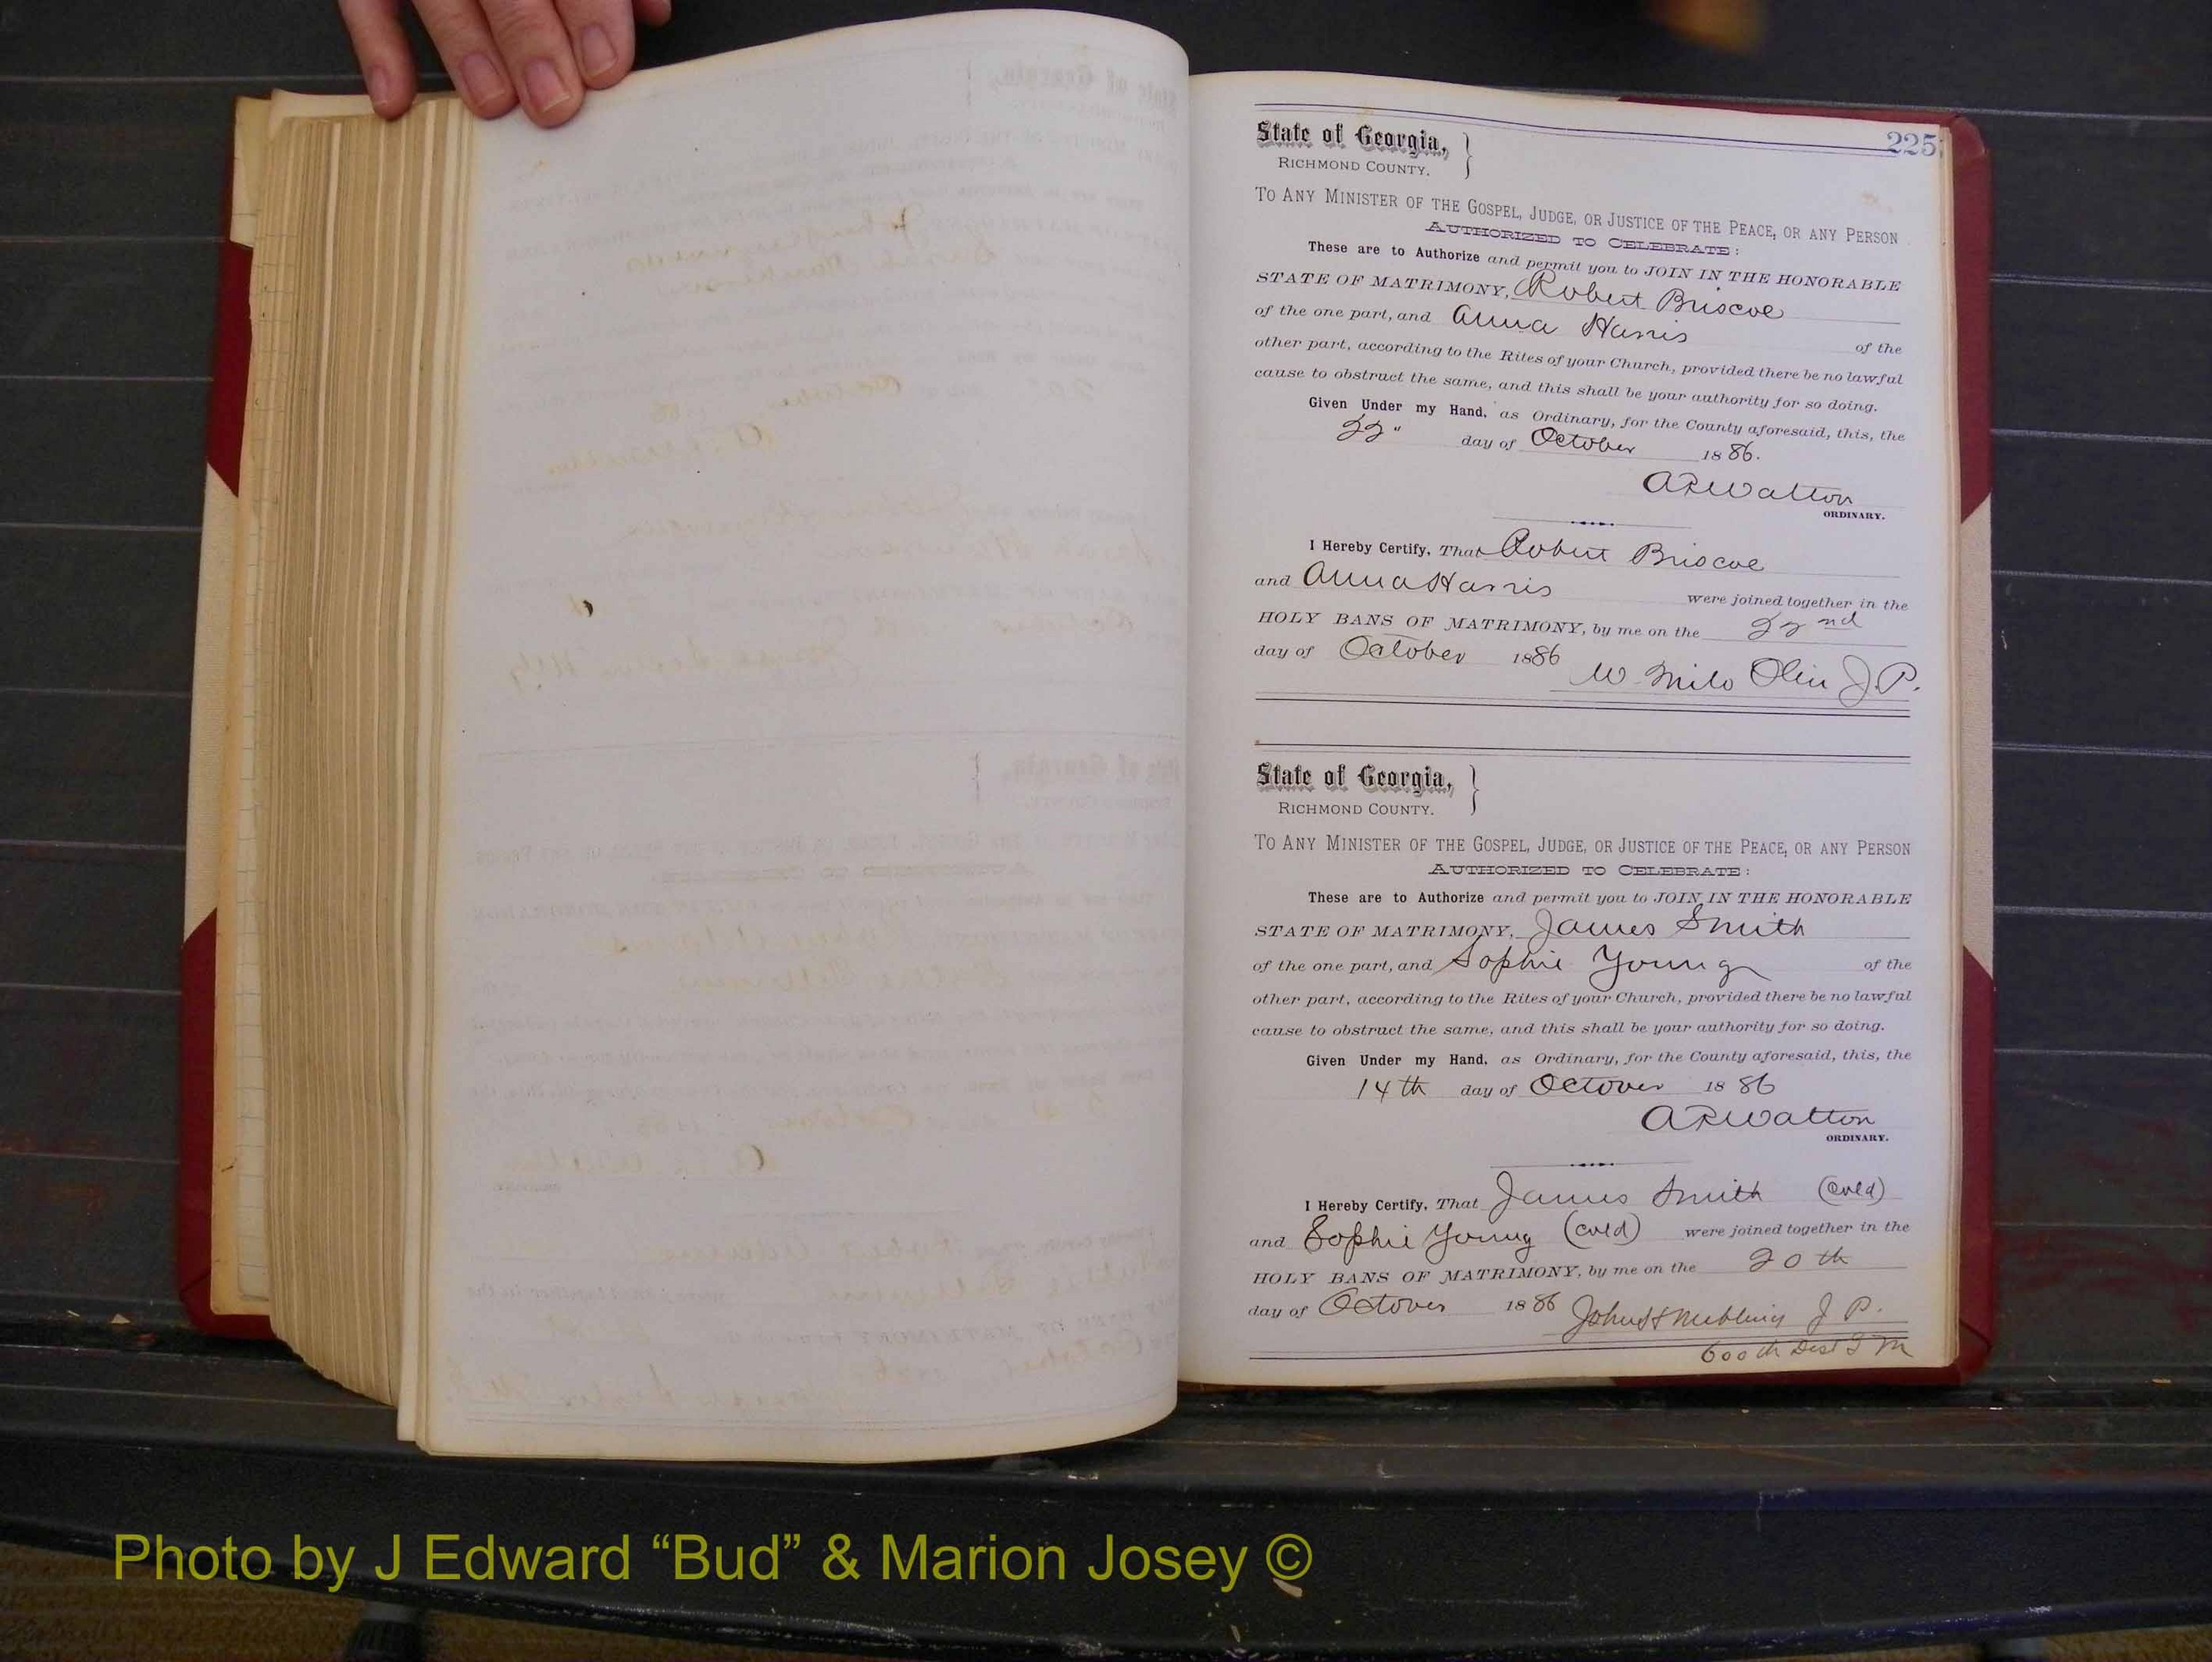 225
State of Georgia, }
RICHMOND COUNTY.
TO ANY MINISTER OF THE GOSPEL, JUDGE, OR JUSTICE OF THE PEACE, OR ANY PERSON
AUTHORIZED TO CELEBRATE:
These are to Authorize and permit you to JOIN IN THE HONORABLE
STATE OF MATRIMONY, Robert Briscoe
of the one part, and Anna Harris of the
other part, according to the Rites of your Church, provided there be no lawful
cause to obstruct the same, and this shall be your authority for so doing.
Given Under my Hand, as Ordinary, for the County aforesaid, this, the
22" day of October 1886.
A R Walton
ORDINARY.
I Hereby Certify, That Robert Briscoe
and Anna Harris were joined together in the
HOLY BANS OF MATRIMONY, by me on the 22nd
day of October 1886
W Milo Olin J. P.
State of Georgia, }
RICHMOND COUNTY.
TO ANY MINISTER OF THE GOSPEL, JUDGE, OR JUSTICE OF THE PEACE, OR ANY PERSON
AUTHORIZED TO CELEBRATE:
These are to Authorize and permit you to JOIN IN THE HONORABLE
STATE OF MATRIMONY, James Smith
of the one part, and Sophie Young of the
other part, according to the Rites of your Church, provided there be no lawful
cause to obstruct the same, and this shall be your authority for so doing.
Given Under my Hand, as Ordinary, for the County aforesaid, this, the
14th day of October 1886
A R Walton
ORDINARY.
I Hereby Certify, That James Smith (Cold)
and Sophie Young (cold) were joined together in the
HOLY BANS OF MATRIMONY, by me on the 20th
day of October 1886 John H J P.
600th Dist G M
Photo by J Edward “Bud” & Marion Josey ©